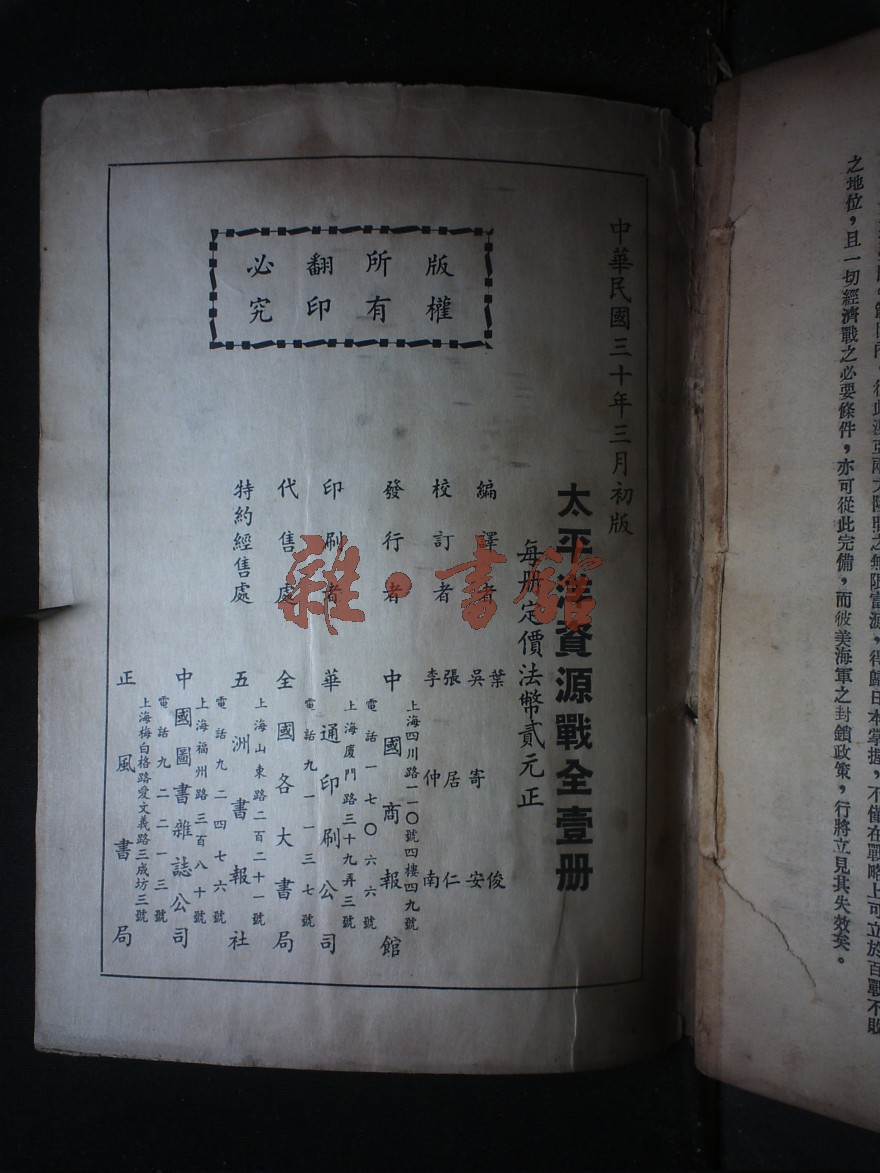 之地位，且一切經濟戰之必要條件，亦可從此完備，而彼美海軍之封鎖政策，行將立見其失效矣。
中華民國三十年三月初版
太平洋資源戰全壹册
每册定價法幣貳元正
版權
所有
翻印
必究
編譯者
葉俊
吳寄安
校訂者
張居仁
李仲南
發行者
中國商報館
上海四川路一一〇號四樓四九號
電話一七〇六六號
印刷者
華通印刷公司
上海廈門路三十九弄三號
電話九一一三七號
代售處
全國各大書局
特約經售處
五洲書報社
上海山東路二百二十一號
電話九二四七六號
中國圖書雜誌公司
上海福州路三百八十號
電話九二二一三號
正風書局
上海梅白格路愛文義路三成坊三號
雜·書館